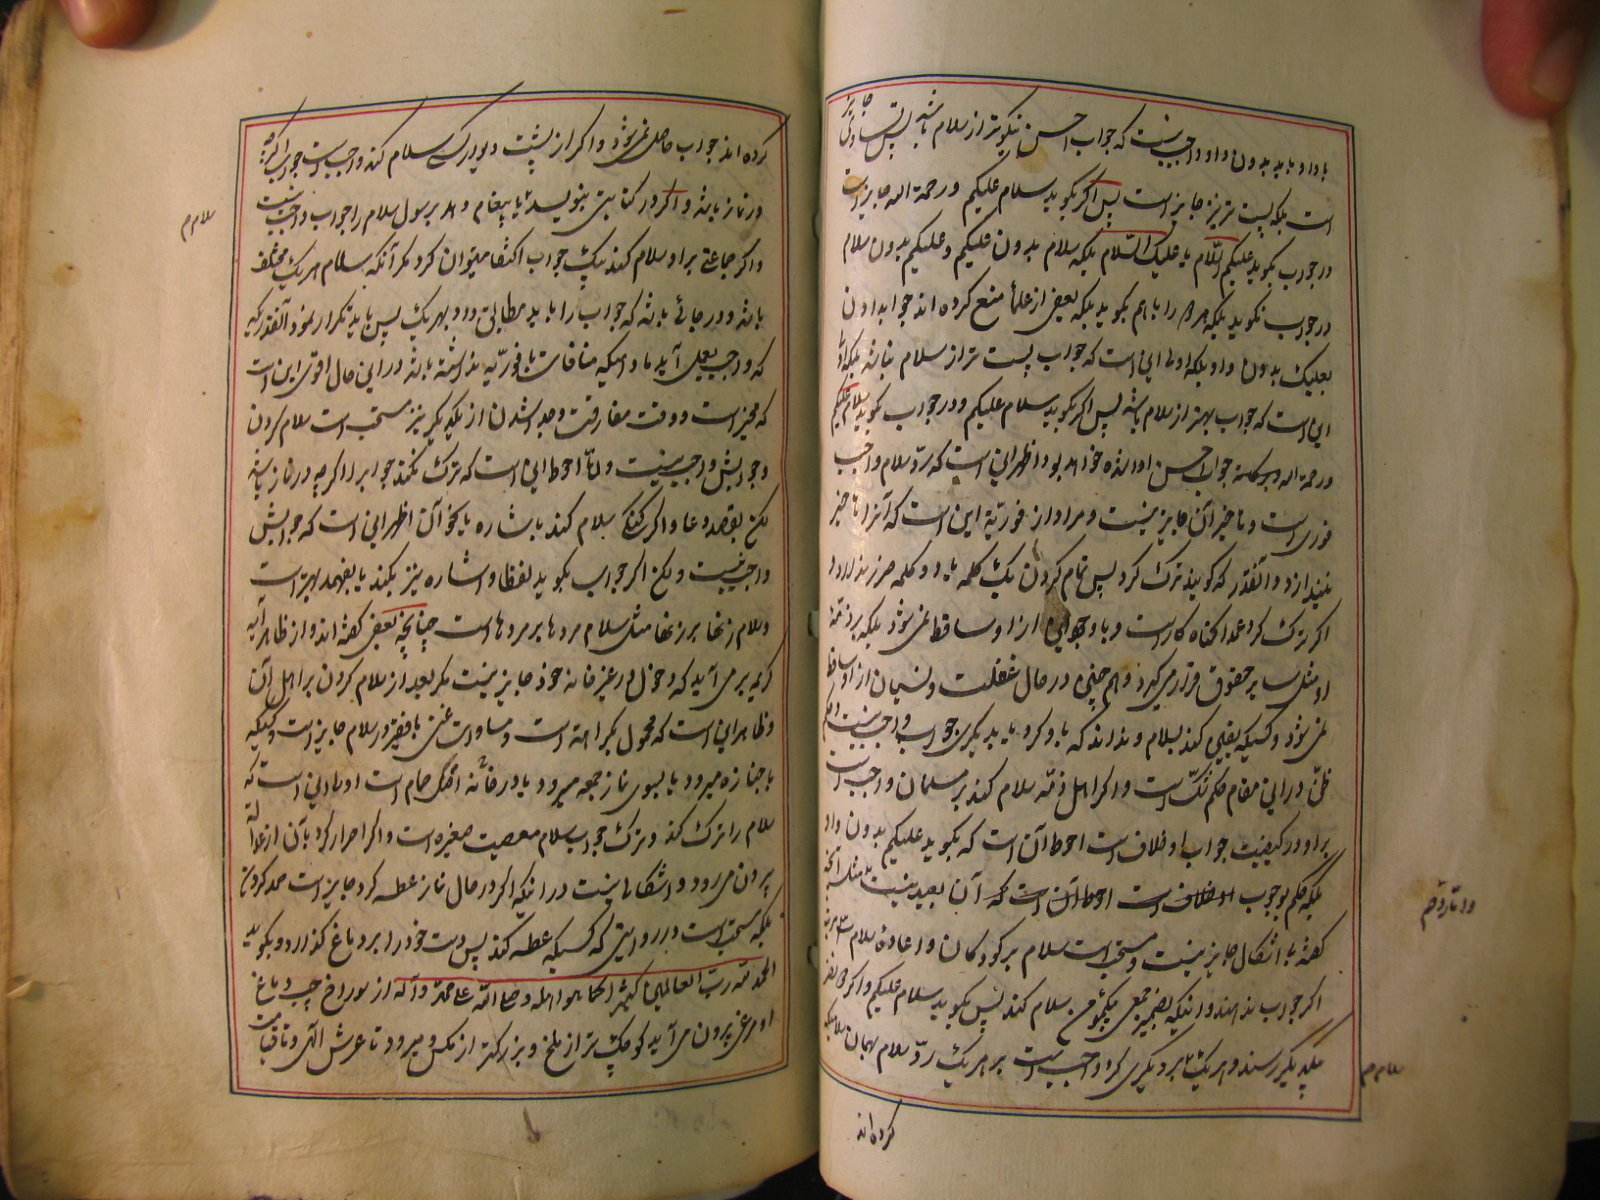 با واو یا بدون واو و واجب نیست که جواب احسن و نیکوتر از سلام باشد پس تساوی جایز
است بلکه پست تر نیز جایز است پس اگر بگوید سلام علیکم و رحمة اله جایز است
در جواب بگوید علیکم السّلام یا علیک السّلام بلکه سلام بدون علیکم و علیکم بدون سلام
در جواب نگوید بلکه هر دو را با هم بگوید بلکه بعضی از علما منع کرده اند جواب دادن
بعلیک بدون واو بلکه اولی این است که جواب پست تر از سلام نباشد بلکه اولی
این است که جواب بهتر از سلام باشد پس اگر بگوید سلام علیکم و در جواب بگوید سلام علیکم
و رحمة اله و برکاته جواب احسن ادا شده خواهد بود و اظهر این است که ردّ سلام واجب
فوری است و تاخیر آن جایز نیست و مراد از فوریّة این است که آنرا تاخیر
نیندازد و آنقدر که گویند ترک کرد پس تمام کردن یک کلمه یا دو کلمه ضرر ندارد و
اگر ترک کرد عمداً گناه کار است و با وجود این از او ساقط نمی شود بلکه بر ذمّهٔ
او مثل سایر حقوق قرار می گیرد و هم چنین در حال غفلت و نسیان از او ساقط
نمی شود و کسیکه یقین کند بسلام و نداند که باو کرد یا بدیگری جواب واجب نیست و حکم
ظنّ در این مقام حکم شکّ است و اگر اهل ذمّه سلام کند بر مسلمان واجب است
بر او و در کیفیّت جواب او خلاف است احوط آن است که بگوید علیکم بدون واو
بلکه حکم بوجوب آن بعید نیست مثل آنچه
گفته شد اشکال جایز نیست و مستحبّ است سلام بر کودکان و اعادهٔ سلام
اگر جواب ندهند و اینکه بضمیر جمع بیک مؤمن سلام کند پس بگوید سلام علیکم و اگر دو نفر
بیکدیگر رسند و هر یک بر دیگری کرد واجب است بر هر یک ردّ سلام
کرده اند
سلام م
کرده اند جواب حاصل نمی شود و اگر از پشت دیوار کسی سلام کند واجب است جواب اگرچه
در نماز باشد و اگر در کتابتی بنویسد یا پیغام دهد برسول سلام را جواب واجب نیست
و اگر جماعتی بر او سلام کنند بیک جواب اکتفا میتوان کرد مگر آنکه سلام هر یک مختلف
باشد و در جائی باشد که جواب را باید مطابق داد بهر یک پس باید تکرار نمود آنقدر
که واجب بعمل آید مادامیکه منافات با فوریّه نداشته باشد در این حال اقوی این است
که مخیّر است و وقت مفارقت و جدا شدن از یکدیگر نیز مستحبّ است سلام کردن
و جوابش واجب نیست و امّا احوط این است که ترک نکند جواب را اگرچه در نماز باشد
لکن بقصد دعا و اگر گنگ سلام کند باشاره یا بنحو آن اظهر این است که جوابش
واجب نیست و لکن اگر جواب بگوید لفظا و اشاره نیز بکند تا بفهمد بهتر است
و سلام زنها بر زنها مثل سلام مردها بر مردها است چنانچه بعضی گفته اند و از ظاهر آیه
کریمه بر می آید که دخول در غیر خانه خود جایز نیست مگر بعد از سلام کردن بر اهل آن
و ظاهر این است که محمول بکراهة است و مساوات غنی با فقیر در سلام جایز است و کسیکه
با جنازه میرود یا بسوی نماز جمعه میرود یا در خانهٔ حمام است اولی این است که
سلام را ترک کند و ترک جواب سلام معصیت صغیره است و اگر اصرار کرد بآن از عدالة
بیرون می رود و اشکالی نیست در اینکه اگر در حال نماز عطسه کرد جایز است حمد کردن
بلکه مستحبّ است و در روایتی که کسیکه عطسه کند پس دست خود را بر دماغ گذارد و بگوید
الحمد لله ربّ العالمین کثیرا کما هو اهله و صلّی اللّه علی محمّد و آله از سوراخ چپ دماغ
او مرغی بیرون می آید کوچک تر از ملخ و بزرگتر از مگس و میرود تا عرش الهی و تا قیامت
سلام م